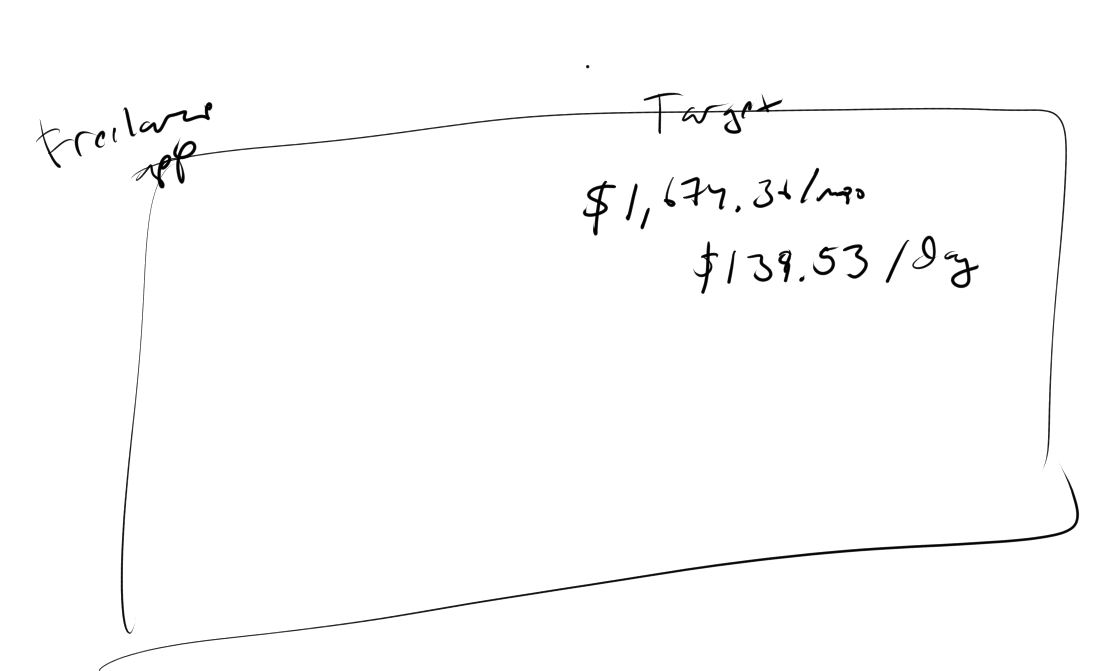 Freelance
app
Target
$1,674.36/mo
$139.53/day